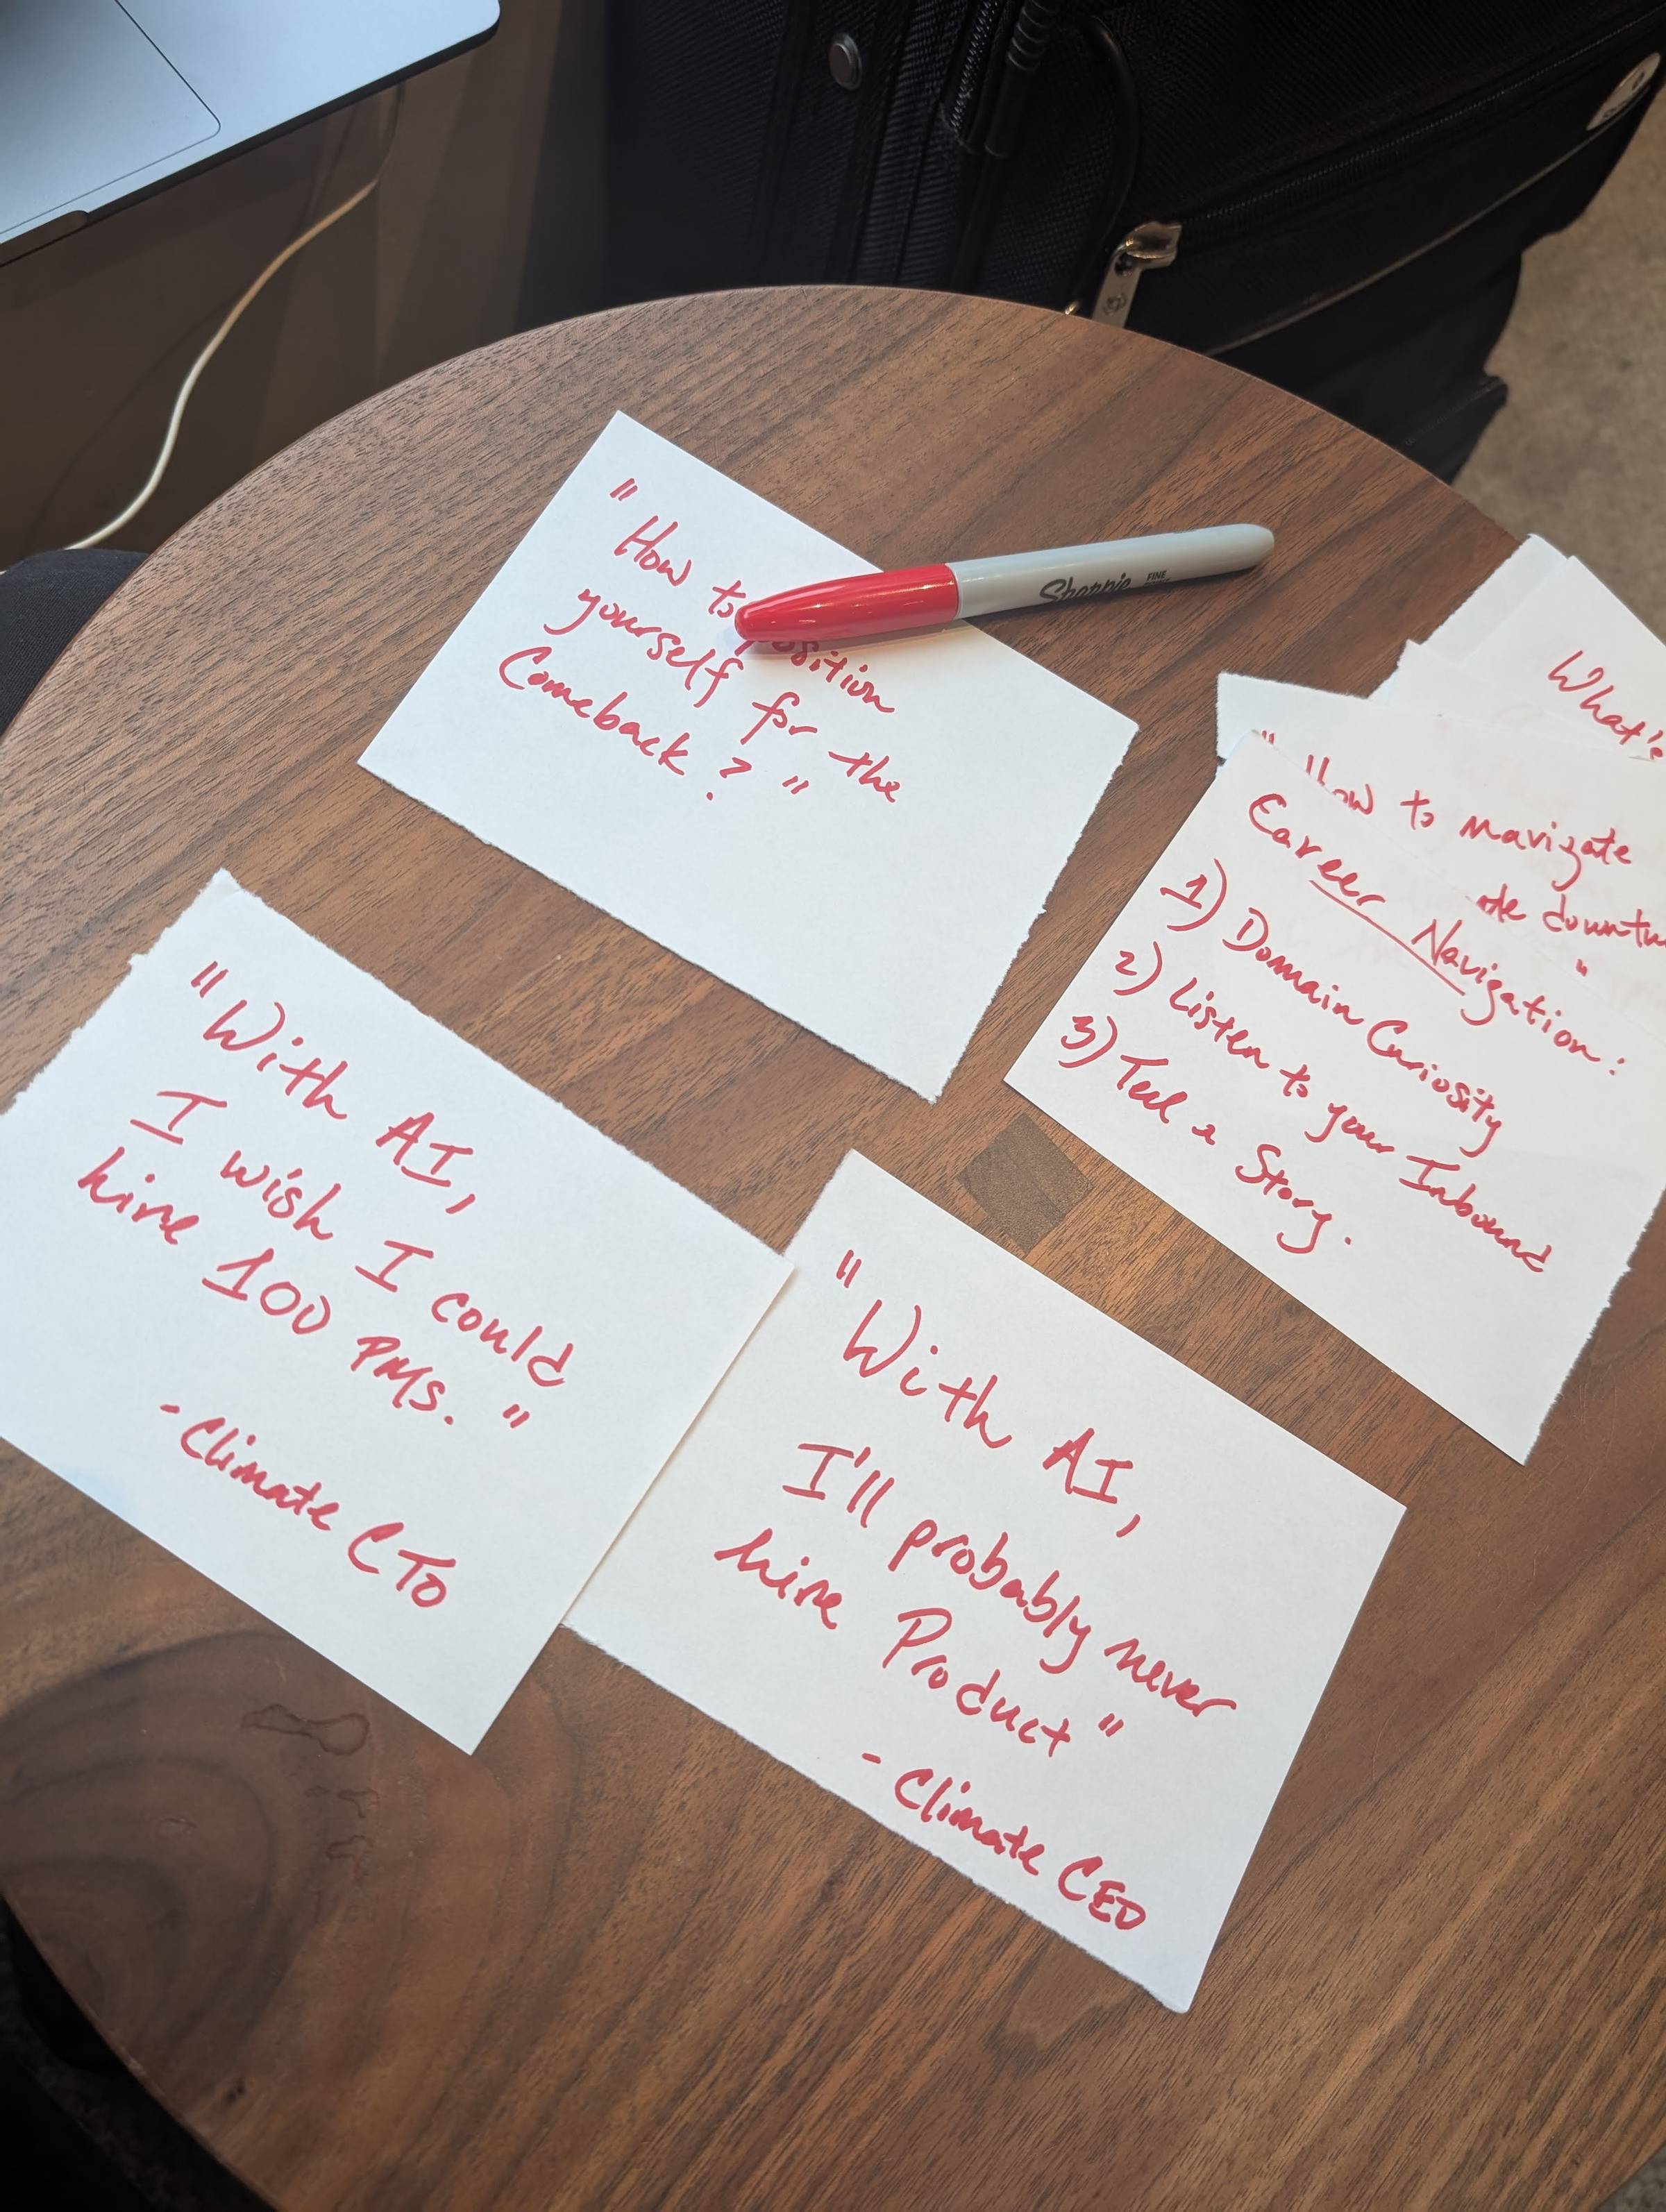 "How to position
yourself for the
Comeback?"
Sharpie
FINE
What's
"How to navigate
the downtu
"
Career Navigation:
1) Domain Curiosity
2) Listen to your Inbound
3) Tell a Story.
"With AI,
I wish I could
hire 100 PMs."
-Climate CTO
"With AI,
I'll probably never
hire Product"
-Climate CEO